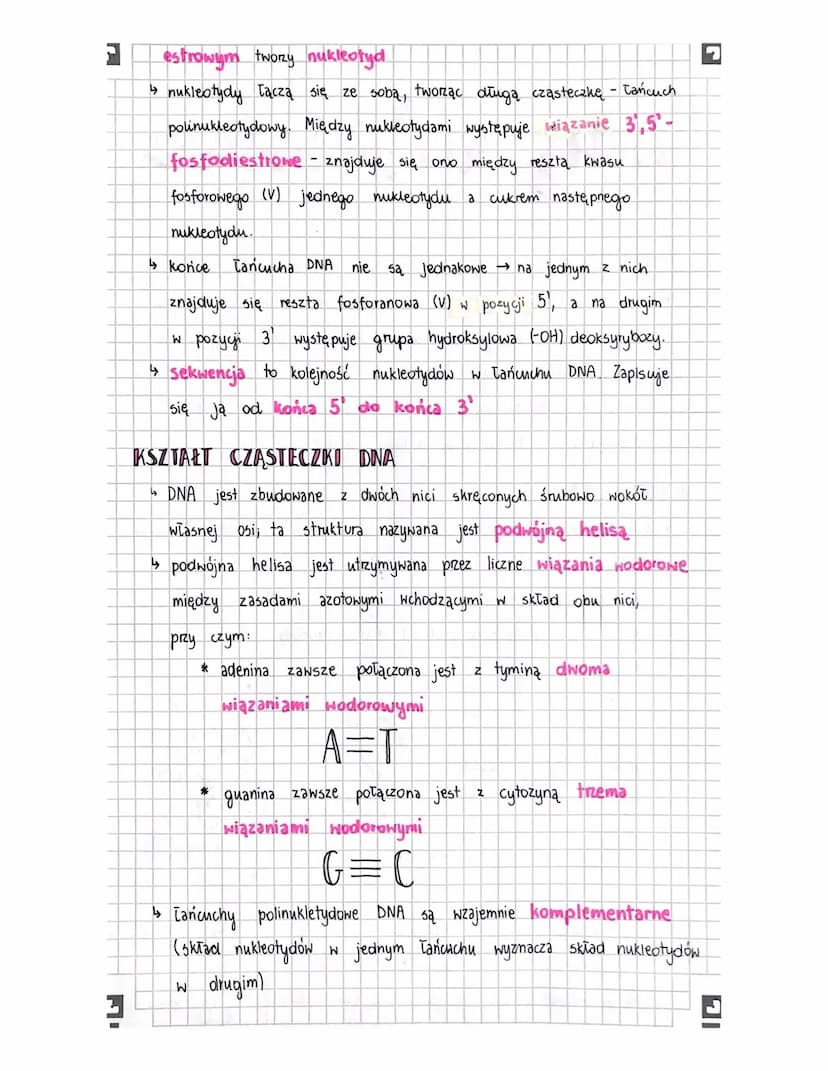 estrowym tworzy nukleotyd
↳ nukleotydy łączą się ze sobą, tworząc długą cząsteczkę - łańcuch
polinukleotydowy. Między nukleotydami występuje wiązanie 3',5'-
fosfodiestrowe - znajduje się ono między resztą kwasu
fosforowego (V) jednego nukleotydu a cukrem następnego
nukleotydu.
↳ końce łańcucha DNA nie są jednakowe → na jednym z nich
znajduje się reszta fosforanowa (V) w pozycji 5', a na drugim
w pozycji 3' występuje grupa hydroksylowa (-OH) deoksyrybozy.
↳ sekwencja to kolejność nukleotydów w łańcuchu DNA. Zapisuje
się ją od końca 5' do końca 3'
KSZTAŁT CZĄSTECZKI DNA
↳ DNA jest zbudowane z dwóch nici skręconych śrubowo wokół
własnej osi; ta struktura nazywana jest podwójną helisą
↳ podwójna helisa jest utrzymywana przez liczne wiązania wodorowe
między zasadami azotowymi wchodzącymi w skład obu nici,
przy czym:
* adenina zawsze połączona jest z tyminą dwoma
wiązaniami wodorowymi
A=T
* guanina zawsze połączona jest z cytozyną trzema
wiązaniami wodorowymi
G≡C
↳ łańcuchy polinukletydowe DNA są wzajemnie komplementarne
(skład nukleotydów w jednym łańcuchu wyznacza skład nukleotydów
w drugim)